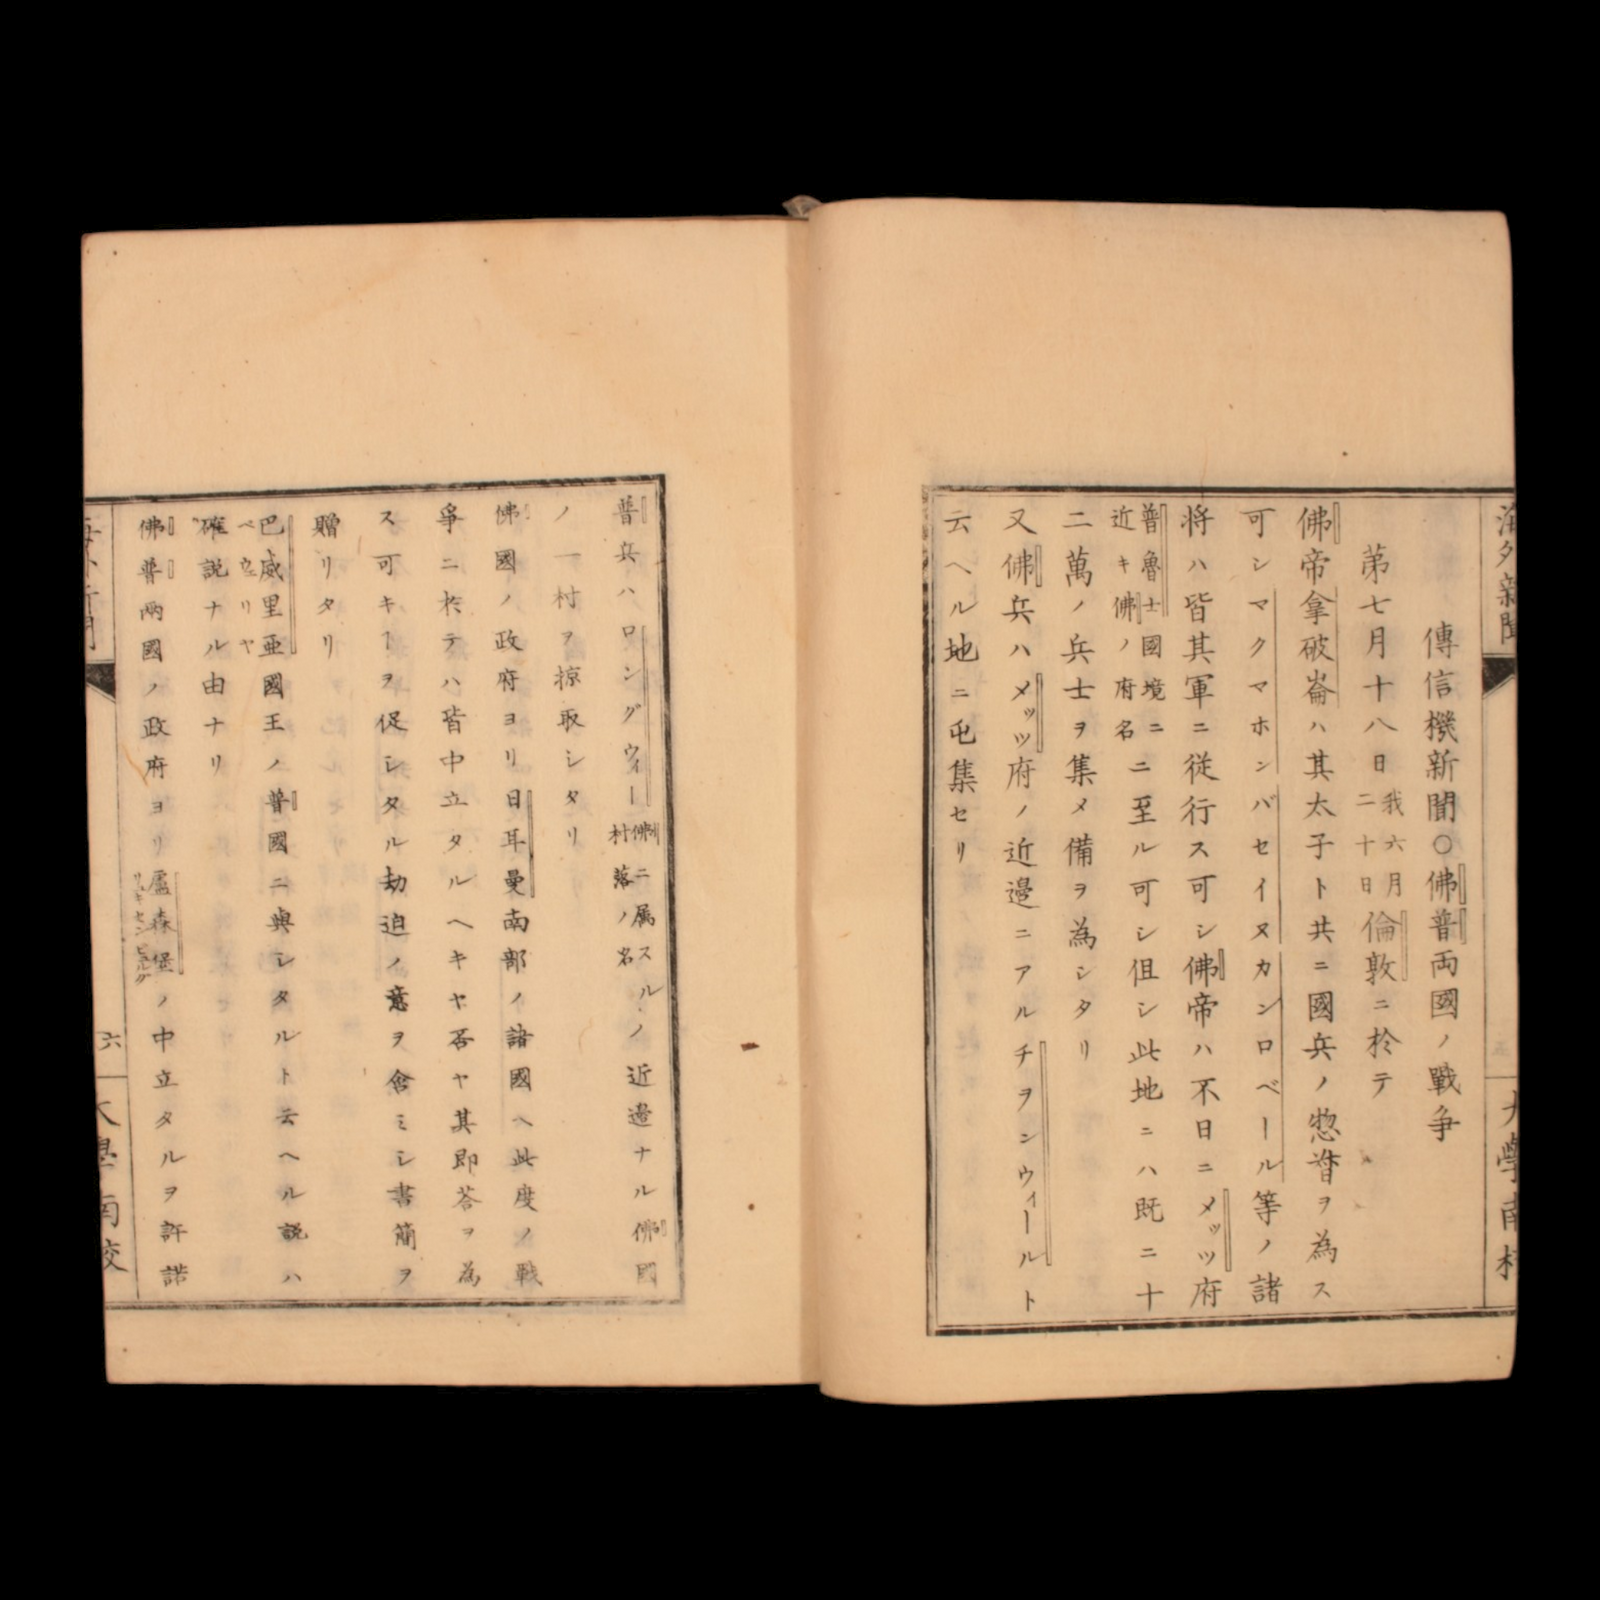 海外新聞
大學南校
傳信機新聞○佛普両國ノ戰争
第七月十八日我六月二十日倫敦ニ於テ
佛帝拿破崙ハ其太子ト共ニ國兵ノ惣督ヲ為ス
可シマクマホンバセイヌカンロベール等ノ諸
将ハ皆其軍ニ従行ス可シ佛帝ハ不日ニメッツ府
普魯士國境ニ近キ佛ノ府名ニ至ル可シ但シ此地ニハ既ニ十
二萬ノ兵士ヲ集メ備ヲ為シタリ
又佛兵ハメッツ府ノ近邉ニアルチヲンウィールト
云ヘル地ニ屯集セリ
普兵ハロングウィー佛ニ属スル村落ノ名ノ近邉ナル佛國
ノ一村ヲ掠取シタリ
佛國ノ政府ヨリ日耳曼南部ノ諸國ヘ此度ノ戰
爭ニ於テハ皆中立タルヘキヤ否ヤ其即荅ヲ為
ス可キヿヲ促シタル劫迫ノ意ヲ含ミシ書簡ヲ
贈リタリ
巴威里亜國王ノ普國ニ與シタルト云ヘル説ハ
ベウェリヤ
確説ナル由ナリ
佛普兩國ノ政府ヨリ盧森堡ノ中立タルヲ許諾
六
大學南校